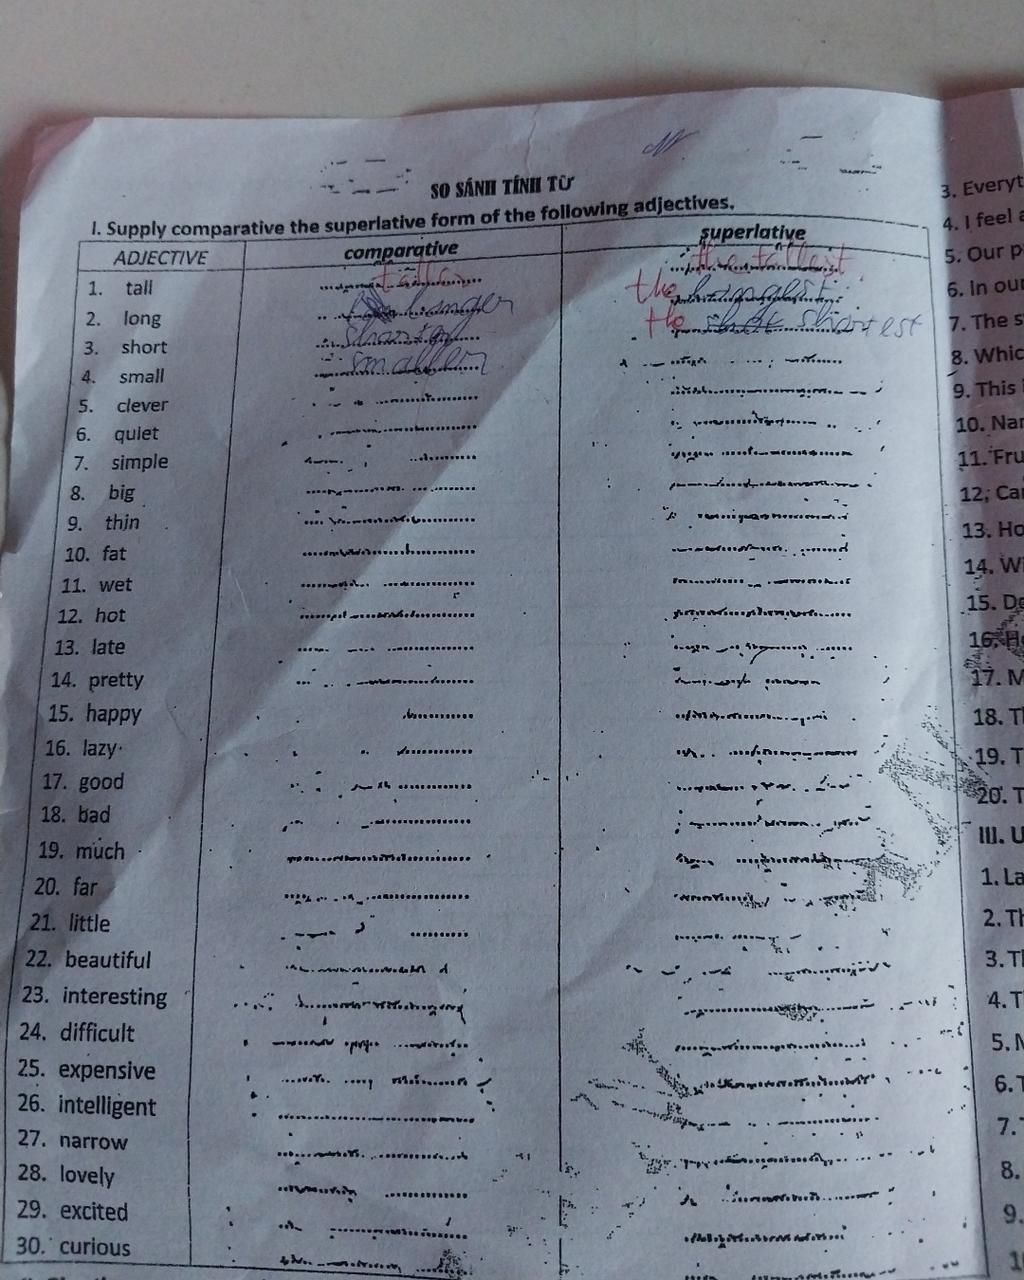 SO SÁNH TÍNH TỪ
I. Supply comparative the superlative form of the following adjectives.
ADJECTIVE comparative superlative
1. tall taller the tallest
2. long longer the longest
3. short shorter the shortest
4. small smaller
5. clever
6. quiet
7. simple
8. big
9. thin
10. fat
11. wet
12. hot
13. late
14. pretty
15. happy
16. lazy
17. good
18. bad
19. much
20. far
21. little
22. beautiful
23. interesting
24. difficult
25. expensive
26. intelligent
27. narrow
28. lovely
29. excited
30. curious
3. Everyt
4. I feel a
5. Our p
6. In our
7. The s
8. Whic
9. This
10. Nar
11. Fru
12. Car
13. Ho
14. Wi
15. De
16. He
17. M
18. Th
19. T
20. T
III. U
1. La
2. Th
3. Th
4. T
5. N
6. T
7. T
8.
9.